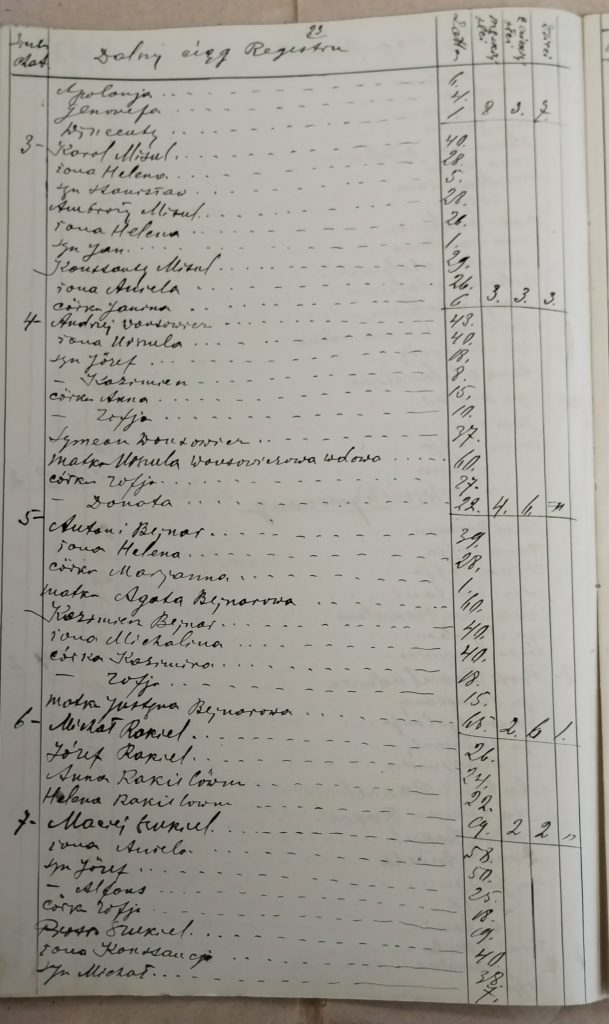 23
Dalny ciąg Registru
Apolonja 6.
Genowefa 4.
Wincenty 1 8 3. 7.
3- Karol Misul 40.
żona Helena 28.
syn Stanisław 5.
Ambroży Misul 28.
żona Helena 26.
syn Jan 1.
Konstanty Misul 29.
żona Aniela 26.
córka Janina 6 3. 3. 3.
4- Andrzej Wonsowicz 43.
żona Urszula 40.
syn Józef 18.
– Kazimierz 8.
córka Anna 15.
– Zofja 10.
Symeon Wonsowicz 37.
matka Urszula Wonsowiczowa wdowa 60.
córka Zofja 27.
– Donata 22. 4. 6. "
5- Antoni Bejnar 39.
żona Helena 28.
córka Marjanna 1.
matka Agata Bejnarowa 60.
Kazimierz Bejnar 40.
żona Michalina 40.
córka Kazimira 18.
– Zofja 15.
matka Justyna Bejnarowa 65. 2. 6 1.
6- Michał Rakiel 26.
Józef Rakiel 24.
Anna Rakielówna 22.
Helena Rakielówna 19. 2 2 "
7- Maciej Szukiel 58.
żona Aniela 50.
syn Józef 25.
– Alfons 18.
córka Zofja 19.
Piotr Szukiel 40
żona Konstancja 38.
syn Michał 7.